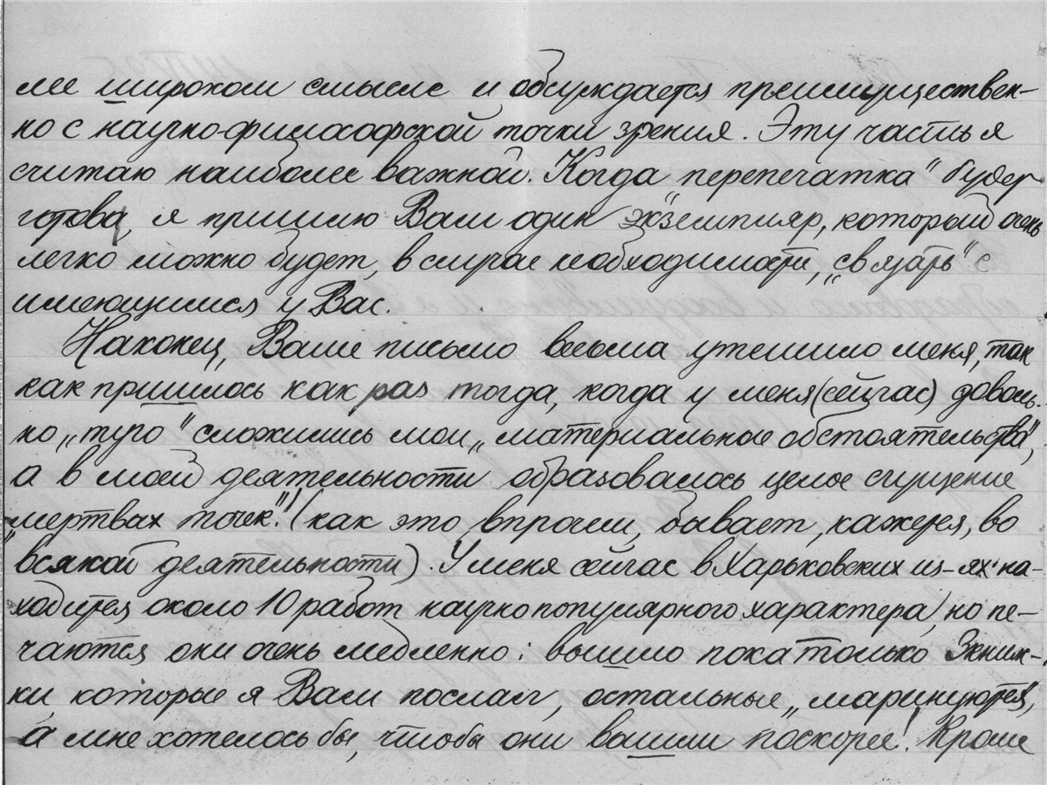 лее широком смысле и обсуждается преимуществен-
но с научно-философской точки зрения. Эту часть я
считаю наиболее важной. Когда перепечатка" будет
готова, я пришлю Вам один экземпляр, который очень
легко можно будет, в случае необходимости, „связать" с
имеющимися у Вас.
Наконец, Ваше письмо весьма утешило меня, так
как пришлось как раз тогда, когда у меня (сейчас) доволь-
но „туго" сложились мои „материальные обстоятельства",
а в моей деятельности образовалось целое сгущение
„мертвых точек"! (как это, впрочем, бывает, кажется, во
всякой деятельности). У меня сейчас в Харьковских из-ях на-
ходится около 10 работ научно популярного характера, но пе-
чаются они очень медленно: вышло пока только 3 книж-
ки, которые я Вам послал, остальные „маринуются",
а мне хотелось бы, чтобы они вышли поскорее! Кроме